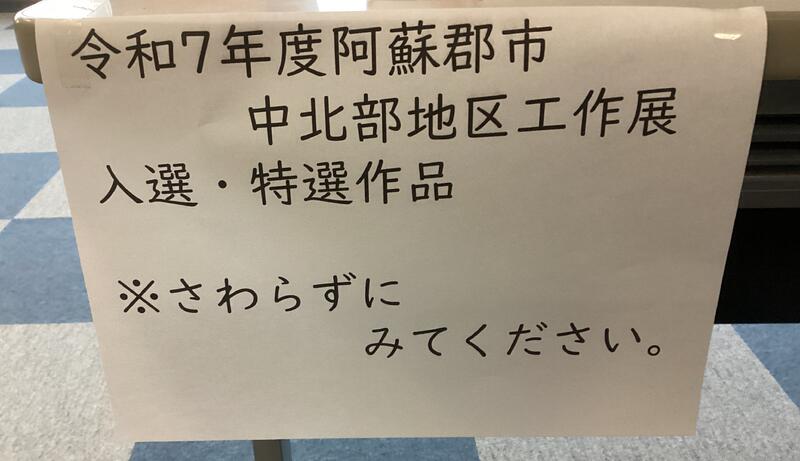 令和7年度阿蘇郡市
中北部地区工作展
入選・特選作品
※さわらずに
みてください。